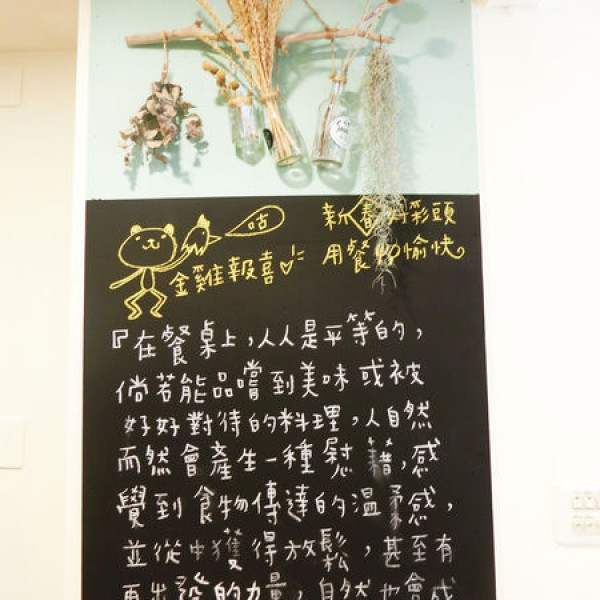 咕
金雞報喜
新春好彩頭
用餐愉快
『在餐桌上,人人是平等的,
倘若能品嚐到美味或被
好好對待的料理,人自然
而然會產生一種慰藉,感
覺到食物傳達的溫柔感,
並從中獲得放鬆,甚至有
再出發的力量,自然也會感